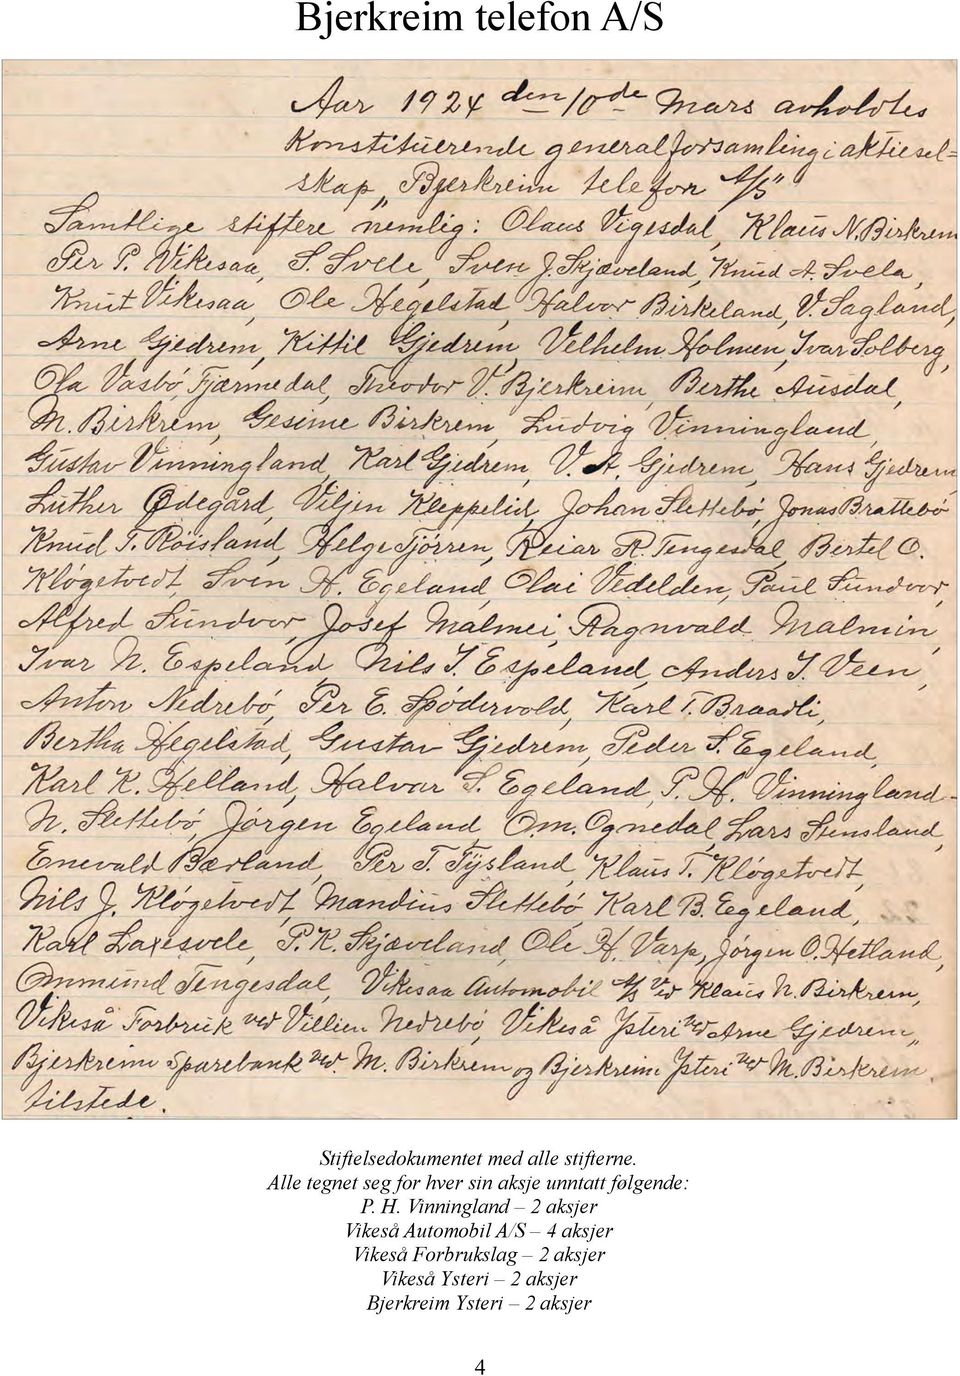 Bjerkreim telefon A/S
Aar 1924 den 10de Mars avholdtes
Konstituerende generalforsamling i aktiesel=
skap „Bjerkreim telefon A/S"
Samtlige stiftere nemlig: Olaus Vigesdal, Klaus N. Birkrem
Per P. Vikesaa, S. Svele, Sven J. Skjæveland, Knud A. Svela,
Knut Vikesaa, Ole Hegelstad, Halvor Birkeland, V. Sagland,
Arne Gjedrem, Kittil Gjedrem, Velhelm Holmen, Ivar Solberg,
Ola Vasbö, Fjærmedal, Theodor V. Bjerkreim, Berthe Ausdal,
M. Birkrem, Gesime Birkrem, Ludvig Vinningland,
Gustav Vinningland, Karl Gjedrem, V. A. Gjedrem, Hans Gjedrem
Luther Ødegård, Viljen Kleppelid, Johan Slettebö, Jonas Brattebö
Knud T. Röisland, Helge Tjörren, Reiar R. Tengesdal, Bertel O.
Klögetvedt, Sven H. Egeland, Olai Vedelden, Paul Sundvor,
Alfred Sundvor, Josef Malmei, Ragnvald Malmin,
Ivar N. Espeland, Nils I. Espeland, Anders I. Veen,
Anton Nedrebö, Per E. Spödervold, Karl T. Braadli,
Bertha Hegelstad, Gustav Gjedrem, Peder S. Egeland,
Karl K. Helland, Halvar S. Egeland, P. H. Vinningland-
N. Slettebö, Jörgen Egeland Om. Ognedal, Lars Stensland,
Enevald Bærland, Per T. Tysland, Klaus T. Klögetvedt,
Nils J. Klögetvedt, Mandius Slettebö, Karl B. Egeland,
Karl Laxesvele, P. K. Skjæveland, Ole H. Varp, Jörgen O. Hetland,
Ommund Tengesdal, Vikesaa Automobil A/S ved Klaus N. Birkrem,
Vikeså Forbruk ved Villien Nedrebö, Vikeså Ysteri ved Arne Gjedrem,,
Bjerkreim Sparebank ved M. Birkrem og Bjerkreim Ysteri ved M. Birkrem.
tilstede.
Stiftelsedokumentet med alle stifterne.
Alle tegnet seg for hver sin aksje unntatt følgende:
P. H. Vinningland – 2 aksjer
Vikeså Automobil A/S – 4 aksjer
Vikeså Forbrukslag – 2 aksjer
Vikeså Ysteri – 2 aksjer
Bjerkreim Ysteri – 2 aksjer
4